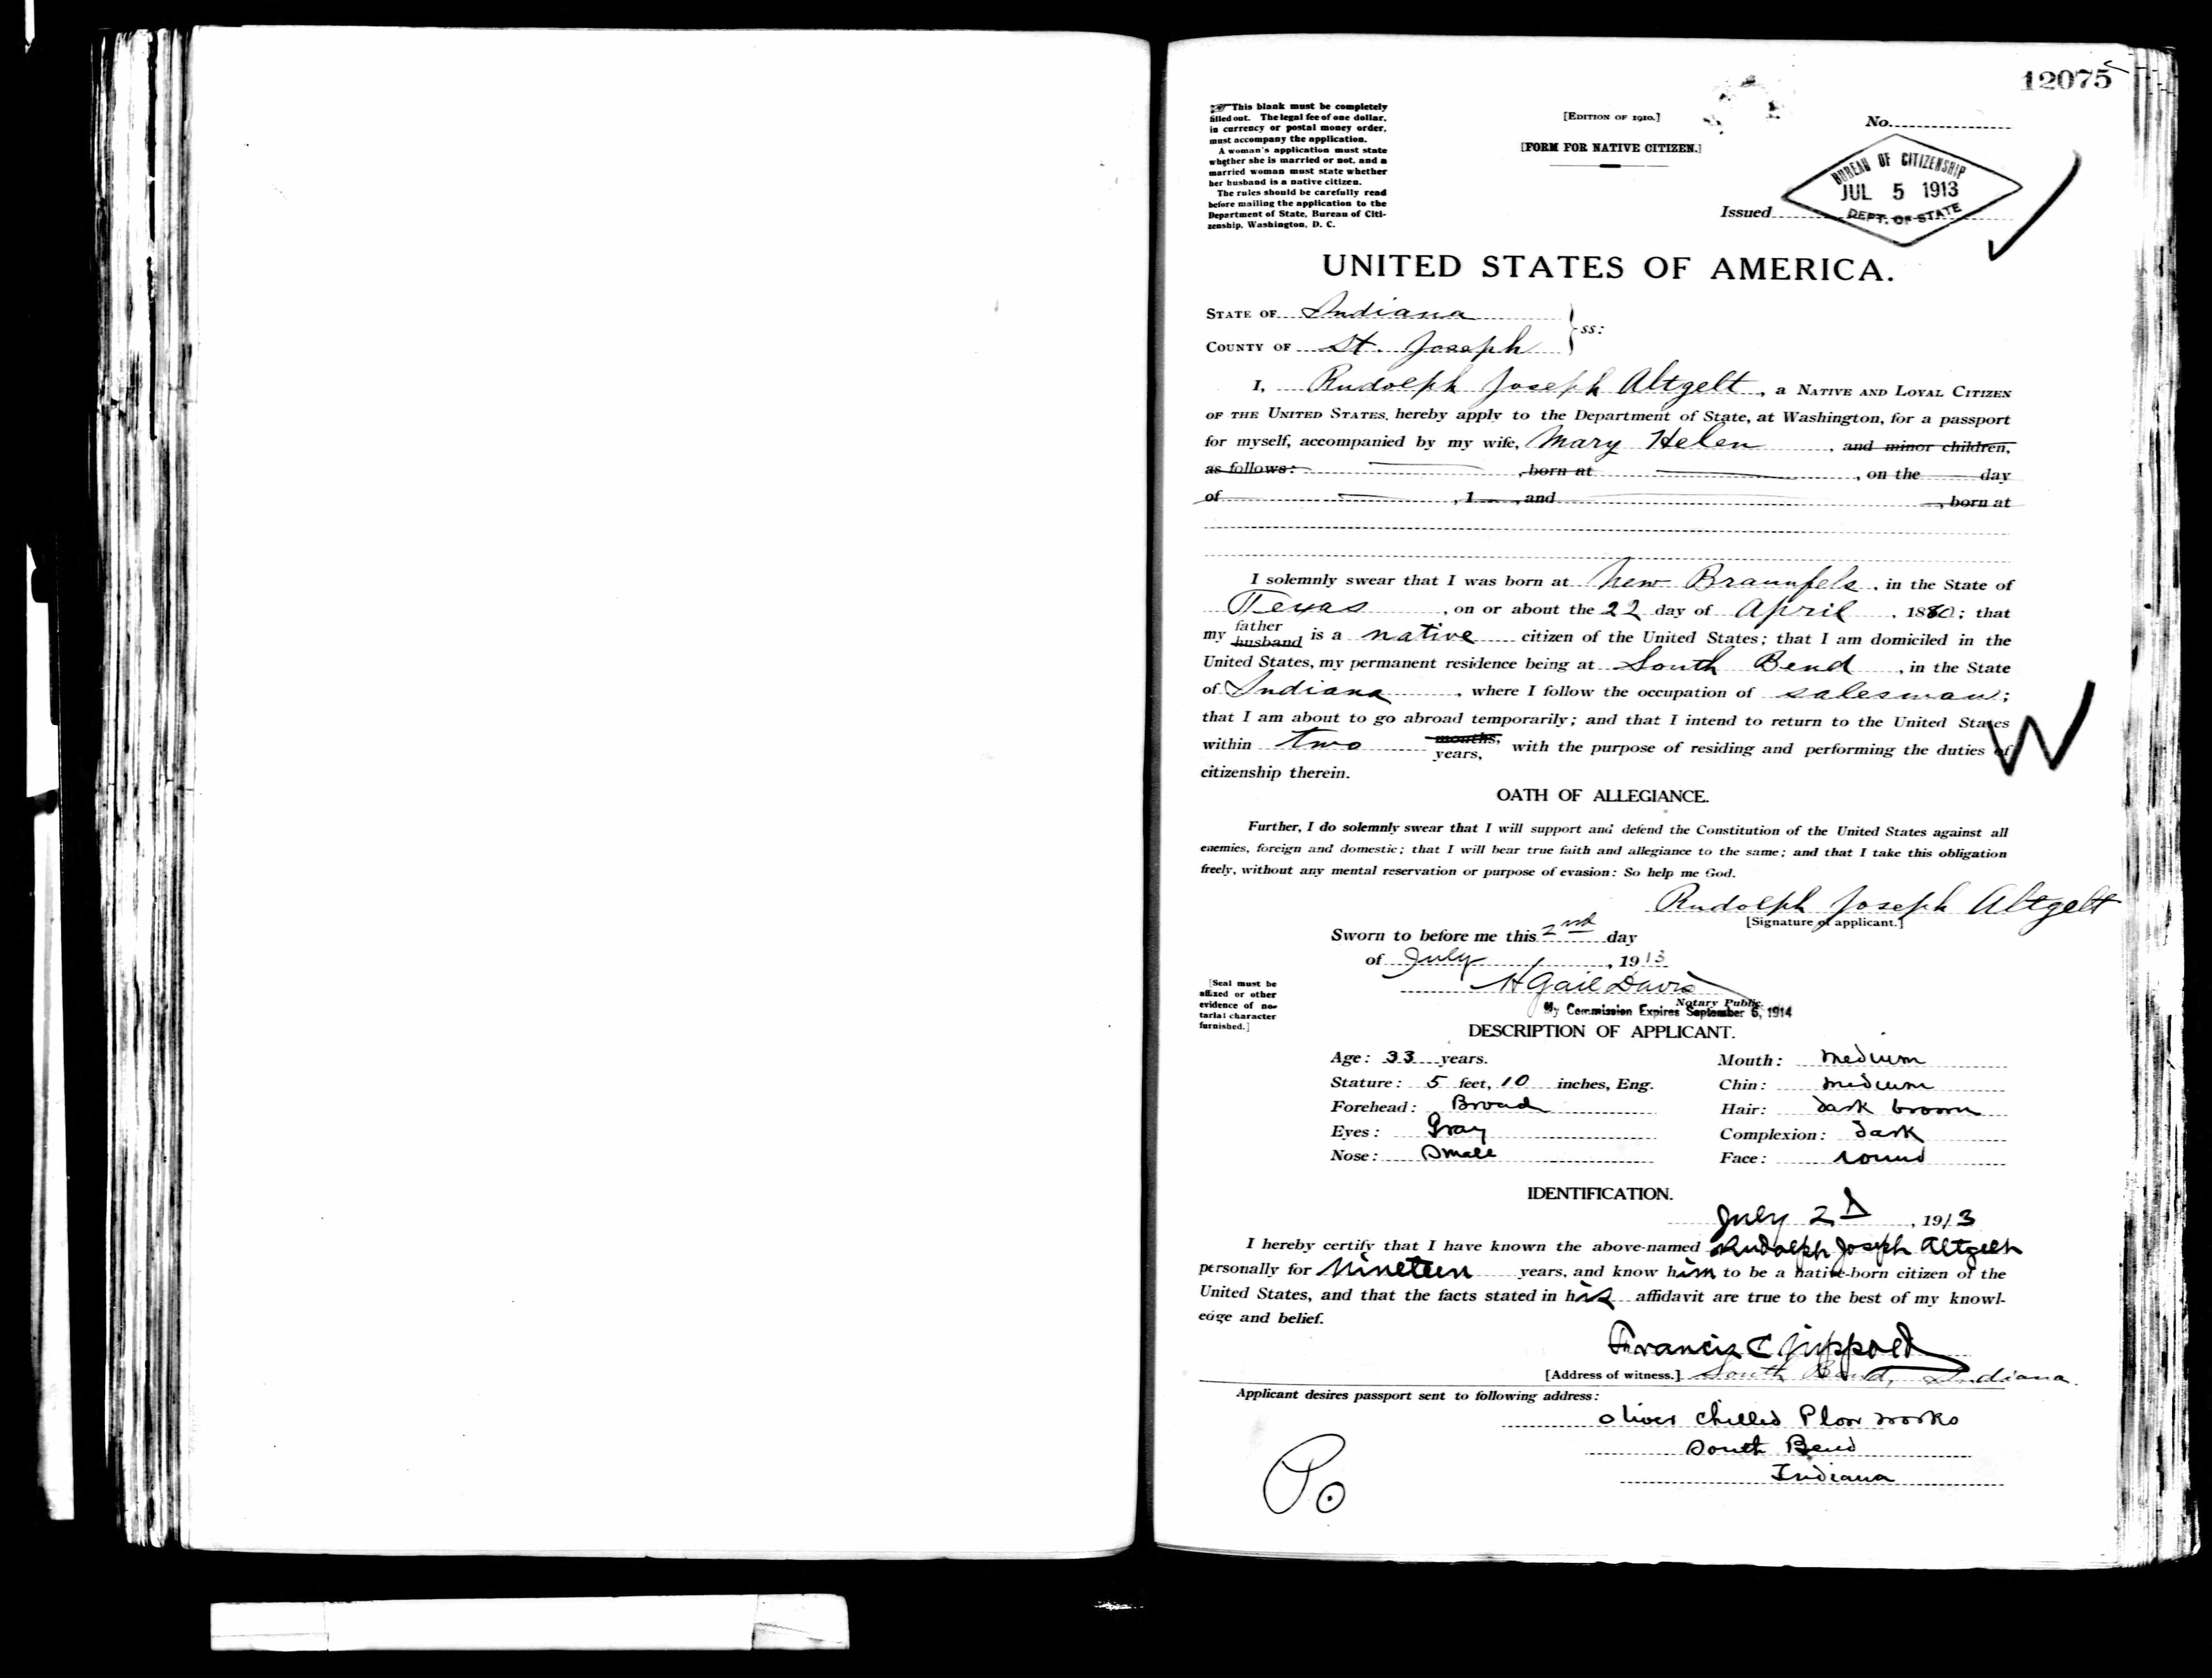 12075
☞This blank must be completely
filled out. The legal fee of one dollar,
in currency or postal money order,
must accompany the application.
A woman's application must state
whether she is married or not, and a
married woman must state whether
her husband is a native citizen.
The rules should be carefully read
before mailing the application to the
Department of State, Bureau of Citi-
zenship, Washington, D. C.
[EDITION OF 1910.]
[FORM FOR NATIVE CITIZEN.]
No.
BUREAU OF CITIZENSHIP
JUL 5 1913
DEPT. OF STATE
Issued
UNITED STATES OF AMERICA.
STATE OF Indiana
ss:
COUNTY OF St. Joseph
I, Rudolph Joseph Altgelt, a NATIVE AND LOYAL CITIZEN
OF THE UNITED STATES, hereby apply to the Department of State, at Washington, for a passport
for myself, accompanied by my wife, Mary Helen, and minor children,
as follows: , born at , on the day
of , 1 , and , born at
I solemnly swear that I was born at New Braunfels, in the State of
Texas, on or about the 22 day of April, 1880; that
my father husband is a native citizen of the United States; that I am domiciled in the
United States, my permanent residence being at South Bend, in the State
of Indiana, where I follow the occupation of salesman;
that I am about to go abroad temporarily; and that I intend to return to the United States
within two months, years, with the purpose of residing and performing the duties of
W
citizenship therein.
OATH OF ALLEGIANCE.
Further, I do solemnly swear that I will support and defend the Constitution of the United States against all
enemies, foreign and domestic; that I will bear true faith and allegiance to the same; and that I take this obligation
freely, without any mental reservation or purpose of evasion: So help me God.
Rudolph Joseph Altgelt
[Signature of applicant.]
Sworn to before me this 2nd day
of July, 1913
H Gail Davis
Notary Public.
My Commission Expires September 5, 1914
[Seal must be
affixed or other
evidence of no-
tarial character
furnished.]
DESCRIPTION OF APPLICANT.
Age: 33 years. Mouth: medium
Stature: 5 feet, 10 inches, Eng. Chin: medium
Forehead: Broad Hair: dark brown
Eyes: Gray Complexion: dark
Nose: Small Face: round
IDENTIFICATION.
July 2d, 1913
I hereby certify that I have known the above-named Rudolph Joseph Altgelt
personally for Nineteen years, and know him to be a native-born citizen of the
United States, and that the facts stated in his affidavit are true to the best of my knowl-
edge and belief.
Francis C
[Address of witness.] South Bend, Indiana.
Applicant desires passport sent to following address:
Oliver Chilled Plow Works
South Bend
Indiana